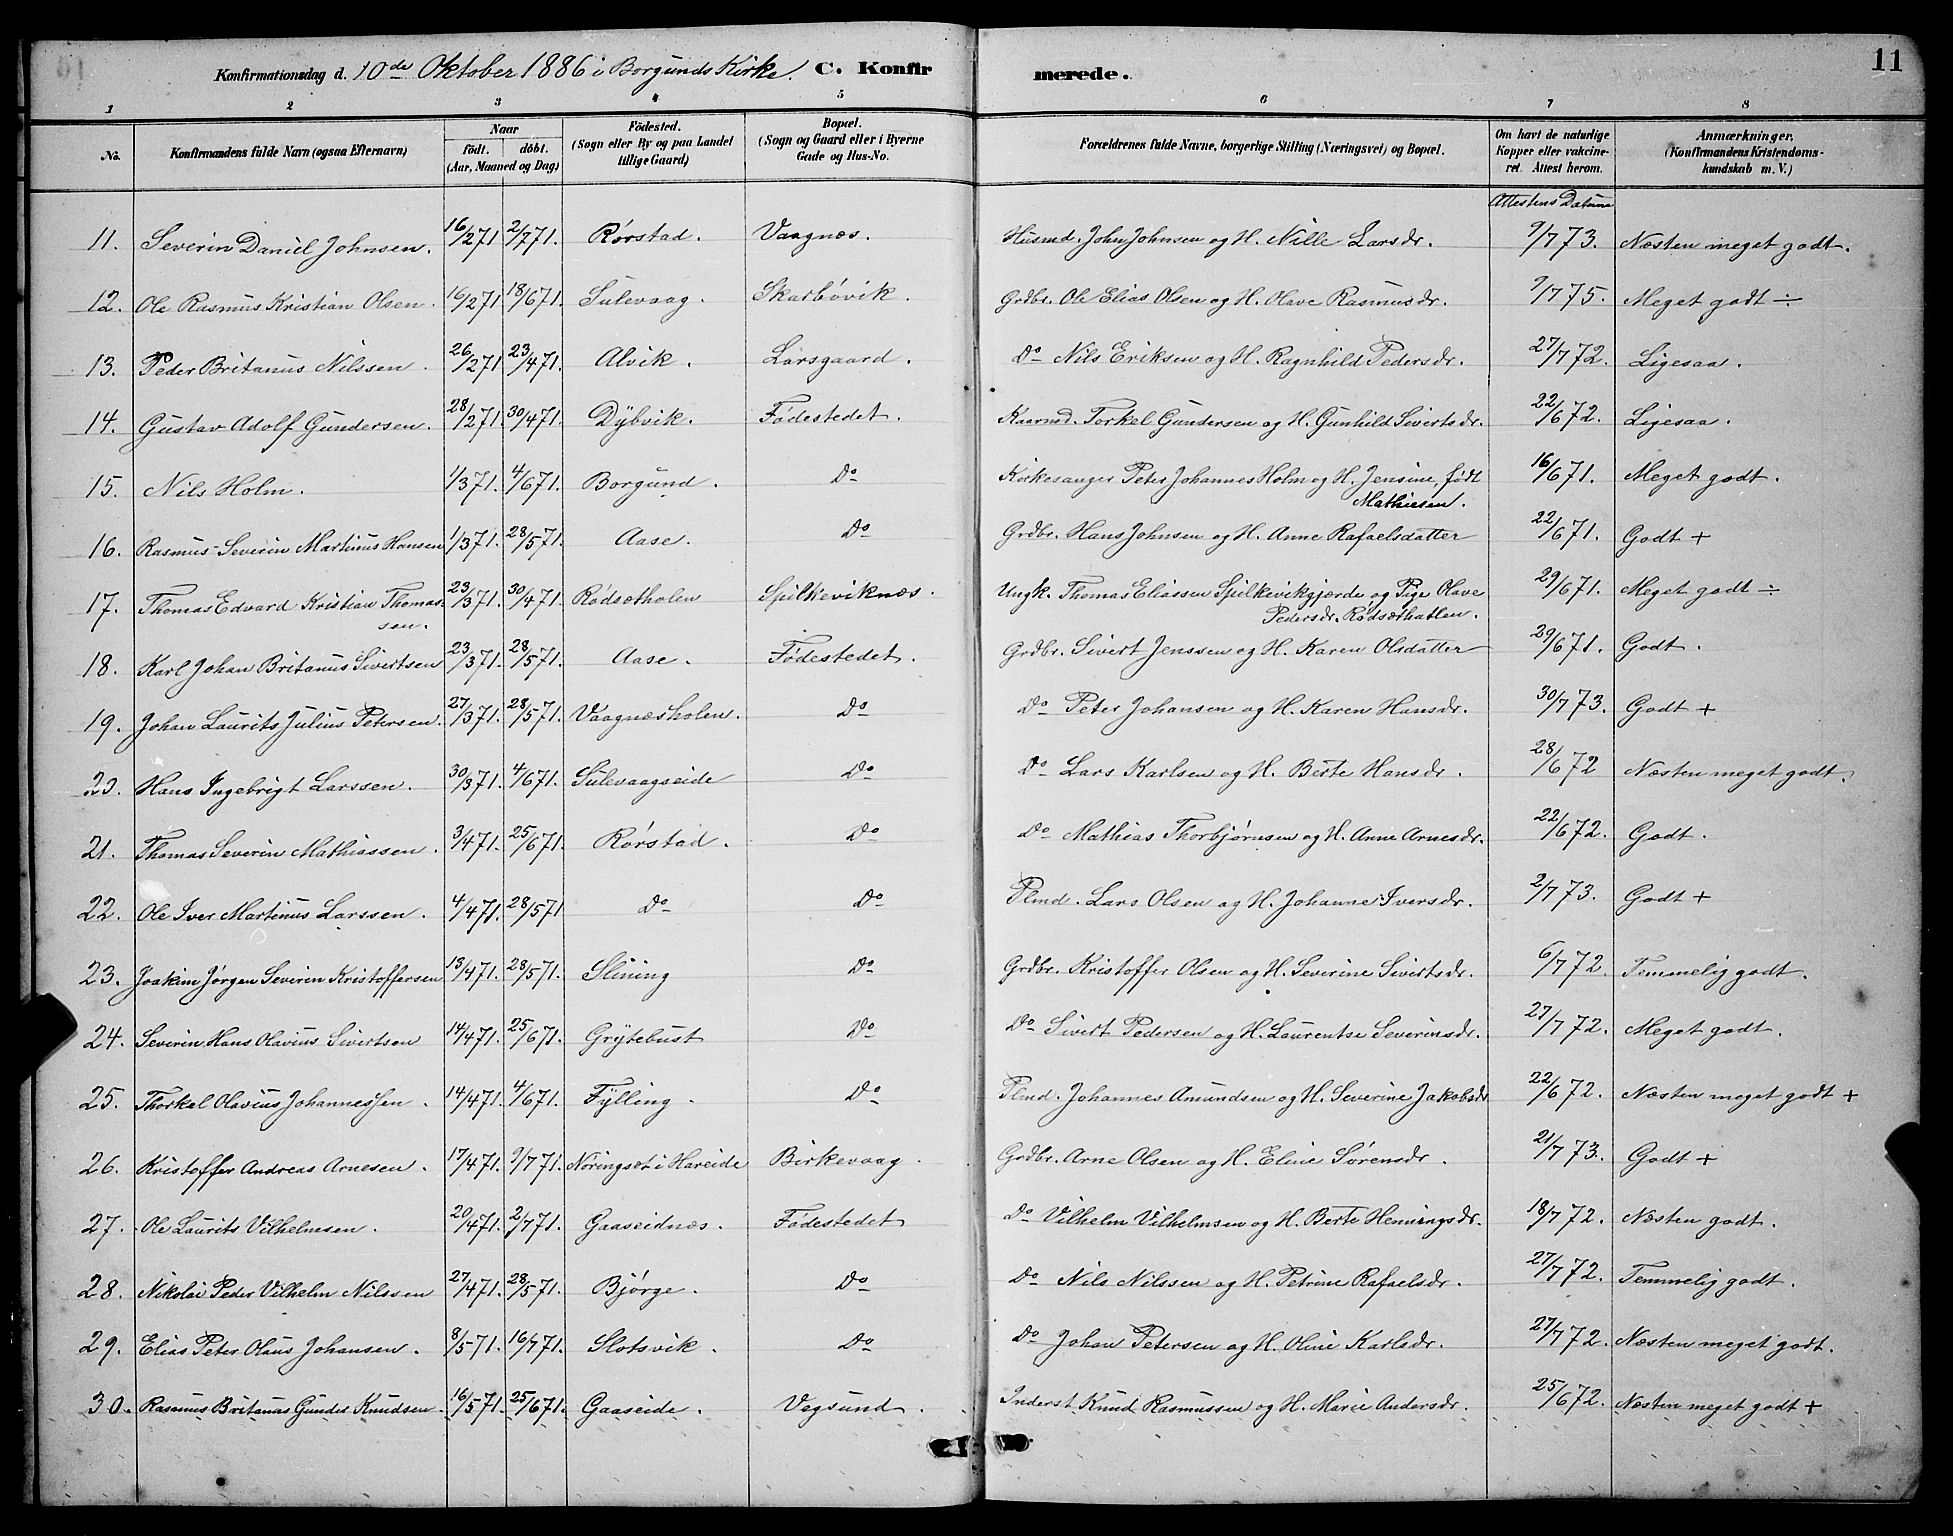 Konfirmationsdag d. 10de Oktober 1886 i Borgunds Kirke. C. Konfirmerede. 11
1 2 3 4 5 6 7 8
No. Konfirmandens fulde Navn (ogsaa Efternavn) Naar födt. döbt. (Aar, Maaned og Dag) Födested. (Sogn eller By og paa Landet tillige Gaard) Bopæl. (Sogn og Gaard eller i Byerne Gade og Hus-No. Forældrenes fulde Navne, borgerlige Stilling (Næringsvei) og Bopæl. Om havt de naturlige Kopper eller vakcineret. Attest herom. Anmærkninger. (Konfirmandens Kristendomskundskab m. V.)
Attestens Datum
11. Severin Daniel Johnsen. 16/2 71 2/7 71. Rørstad. Vaagnæs. Husmd. John Johnsen og H. Nille Larsdr. 9/7 73. Næsten meget godt.
12. Ole Rasmus Kristian Olsen. 16/2 71 18/6 71. Sulevaag. Skarbøvik. Grdbr. Ole Elias Olsen og H. Olave Rasmusdr. 9/7 75. Meget godt ÷
13. Peder Britanus Nilssen. 26/2 71 23/4 71. Alvik. Larsgaard. Do Nils Eriksen og H. Ragnhild Pedersdr. 27/7 72. Ligesaa.
14. Gustav Adolf Gundersen. 28/2 71 30/4 71. Dybvik. Fødestedet. Kaarmd. Torkel Gundersen og H. Gunhild Sivertsdr. 22/6 72. Ligesaa.
15. Nils Holm. 1/3 71. 4/6 71. Borgund. Do Kirkesanger Peter Johannes Holm og H. Jensine, født Mathiesen. 16/6 71. Meget godt.
16. Rasmus Severin Martinus Hansen 1/3 71. 28/5 71. Aase. Do Grdbr. Hans Johnsen og H. Anne Rafaelsdatter 22/6 71. Godt +
17. Thomas Edvard Kristian Thomassen. 23/3 71. 30/4 71. Rødsætholen Spilkeviknæs. Ungk. Thomas Eliassen Spilkevikgjærde og Pige Olave Pedersdr. Rødsæthatlen. 29/6 71. Meget godt ÷
18. Karl Johan Britanus Sivertsen 23/3 71. 28/5 71. Aase. Fødestedet. Grdbr. Sivert Jenssen og H. Karen Olsdatter 29/6 71. Godt.
19. Johan Laurits Julius Petersen. 27/3 71. 28/5 71. Vaagnæsholen. Do Do Peter Johansen og H. Karen Hansdr. 30/7 73. Godt +
20. Hans Ingebrigt Larssen. 30/3 71. 4/6 71. Sulevaagseide Do Do Lars Karlsen og H. Berte Hansdr. 28/6 72 Næsten meget godt.
21. Thomas Severin Mathiassen. 3/4 71. 25/6 71. Rørstad. Do Do Mathias Thorbjørnsen og H. Anne Arnesdr. 22/6 72. Godt.
22. Ole Iver Martinus Larssen. 4/4 71. 28/5 71 Do Do Plmd. Lars Olsen og H. Johanne Iversdr. 2/7 73. Godt +
23. Joakim Jørgen Severin Kristoffersen 13/4 71. 28/5 71. Slining Do Grdbr. Kristoffer Olsen og H. Severine Sivertsdr. 6/7 72. Temmelig godt.
24. Severin Hans Olavius Sivertsen 14/4 71. 25/6 71. Grytebust Do Do Sivert Pedersen og H. Laurentse Severinsdr. 27/7 72. Meget godt.
25. Thorkel Olavius Johannessen. 14/4 71. 4/6 71. Fylling. Do Plmd. Johannes Amundsen og H. Severine Jakobsdr 22/6 72. Næsten meget godt +
26. Kristoffer Andreas Arnesen. 17/4 71. 9/7 71. Noringset i Hareide Birkevaag. Grdbr. Arne Olsen og H. Eline Sørensdr. 21/7 73. Godt +
27. Ole Laurits Vilhelmsen. 20/4 71. 2/7 71. Gaaseidnæs. Fødestedet Do Vilhelm Vilhelmsen og H. Berte Henningsdr. 18/7 72. Næsten godt.
28. Nikolai Peder Vilhelm Nilssen 27/4 71. 28/5 71. Bjørge. Do Do Nils Nilssen og H. Petrine Rafaelsdr. 27/7 72. Temmelig godt.
29. Elias Peter Olaus Johansen. 8/5 71. 16/7 71. Slotsvik. Do Do Johan Petersen og H. Oline Karlsdr. 27/7 72. Næsten meget godt.
30. Rasmus Britanus Gunder Knudsen. 16/5 71. 25/6 71. Gaaseide. Vegsund. Inderst Knud Rasmussen og H. Marie Andersdr. 25/6 72. Næsten meget godt +